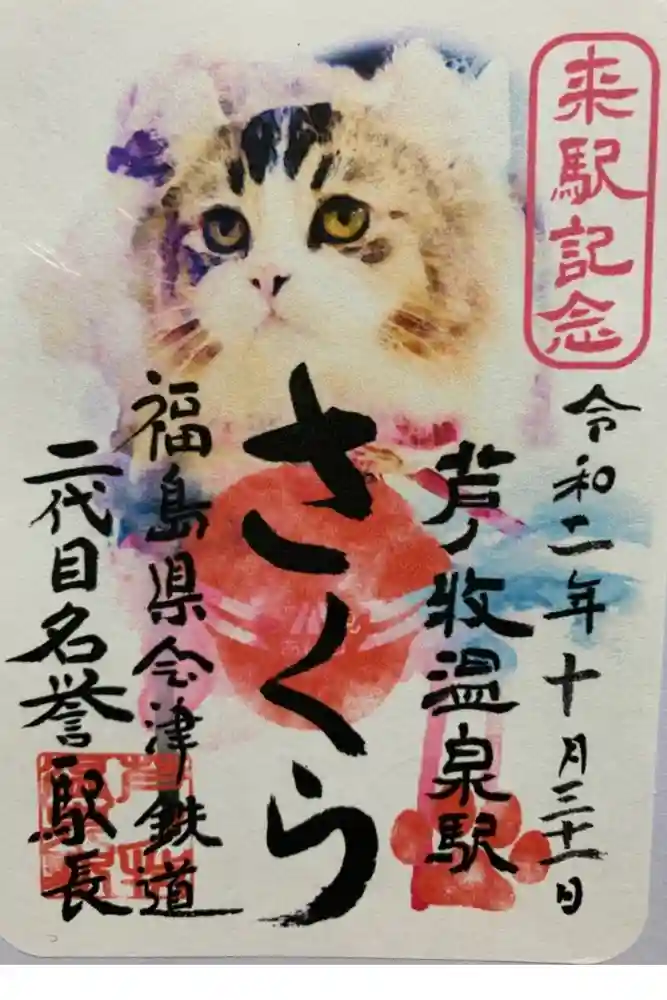 来駅記念
令和二年十月三十一日
芦ノ牧温泉駅
さくら
福島県会津鉄道
二代目名誉駅長